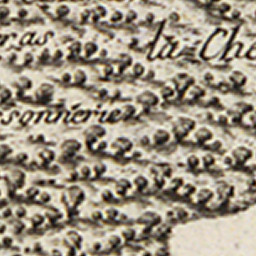 ras
la Che
sonnerie